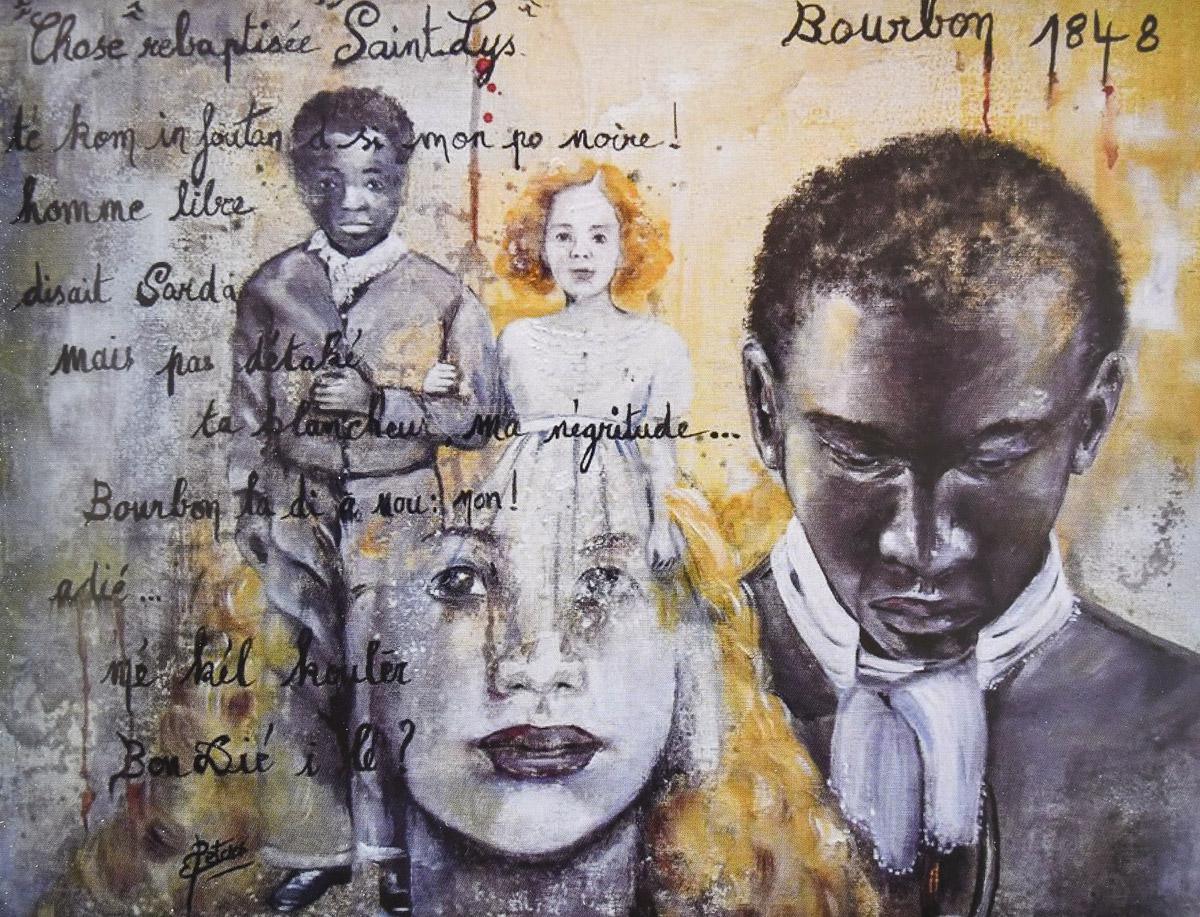 "Chose" rebaptisée "Saint-Lys"
Bourbon 1848
té kom in foutan d si mon po noire!
homme libre
disait Sarda
mais pas détaké
ta blancheur, ma négritude...
Bourbon la di à nou: non!
adié...
mé kél koulèr
Bon Dié i lé?